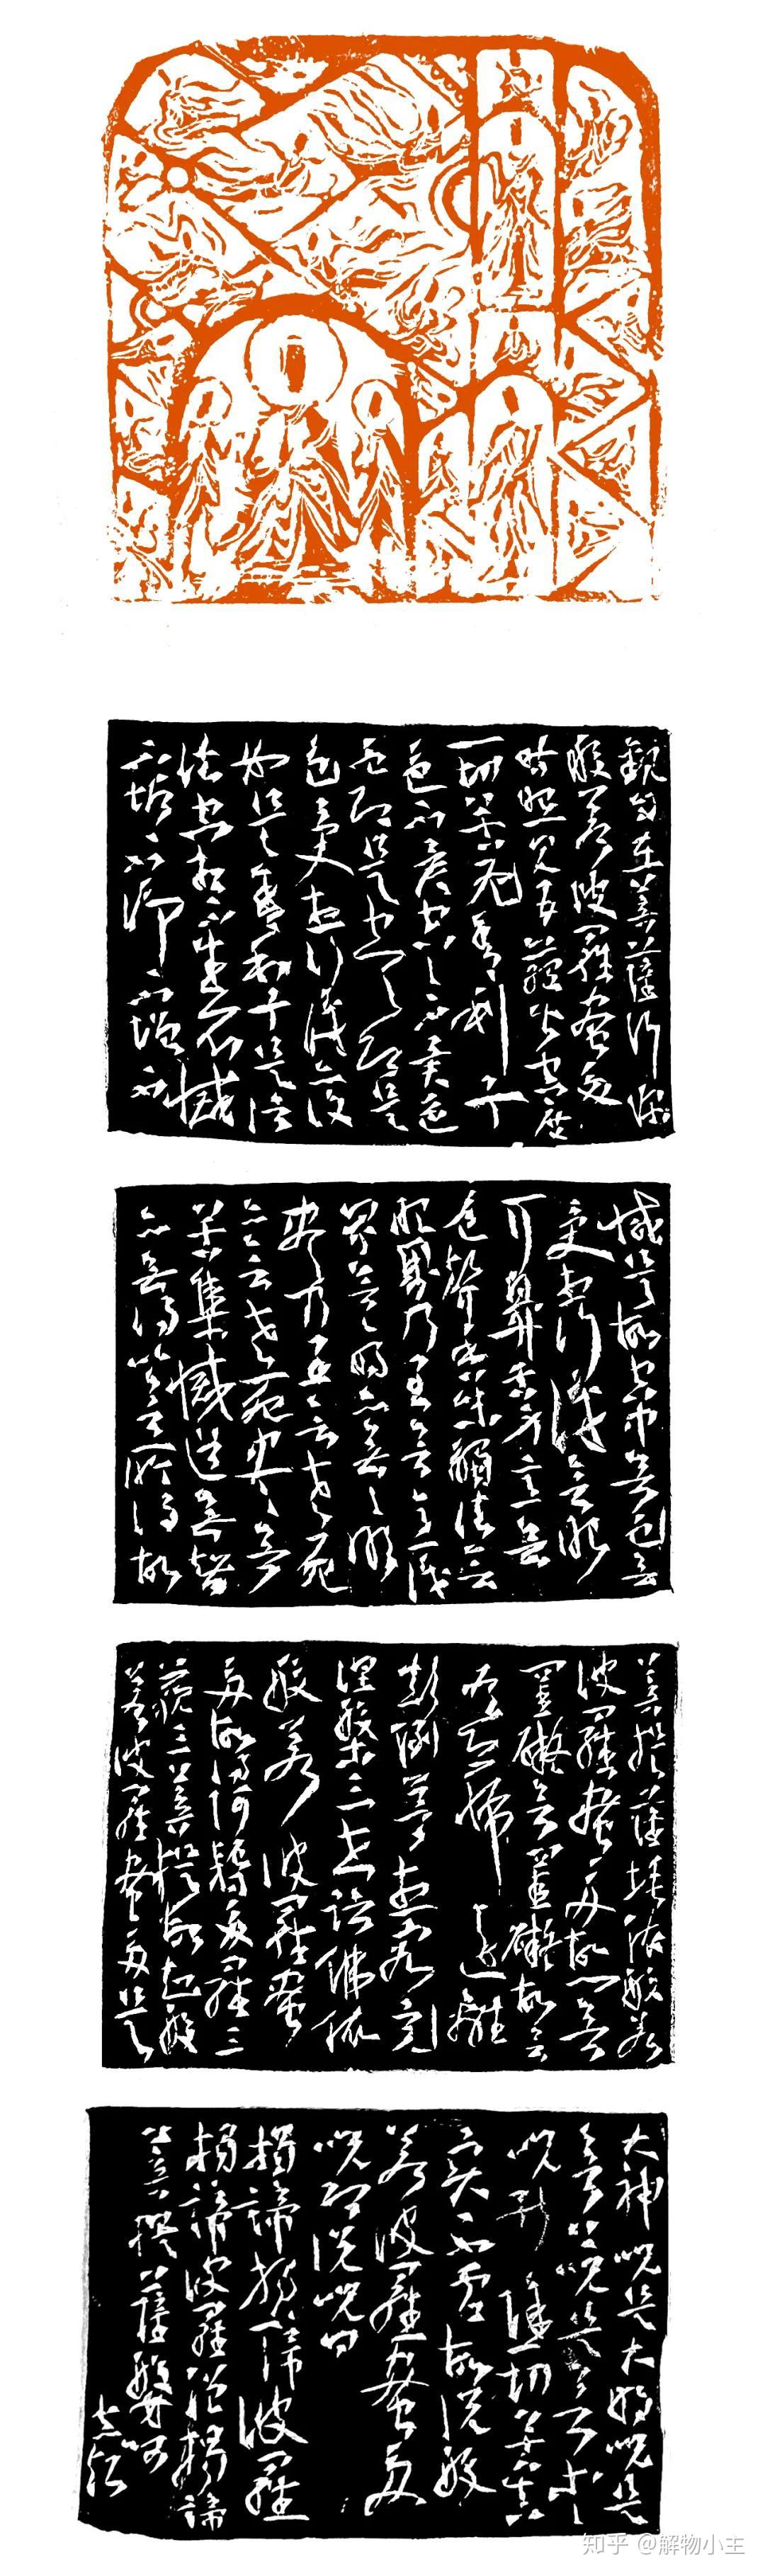 觀自在菩薩行深
般若波羅蜜多
時照見五蘊皆空度
一切苦厄舍利子
色不異空空不異色
色即是空空即是
色受想行識亦復
如是舍利子是諸
法空相不生不滅
不垢不淨不增不
減是故空中無色無
受想行識無眼
耳鼻舌身意無
色聲香味觸法無
眼界乃至無意識
界無無明亦無無明
盡乃至無老死
亦無老死盡無
苦集滅道無智
亦無得以無所得故
菩提薩埵依般若
波羅蜜多故心無
罣礙無罣礙故無
有恐怖遠離
顛倒夢想究竟
涅槃三世諸佛依
般若波羅蜜
多故得阿耨多羅三
藐三菩提故知般
若波羅蜜多是
大神咒是大明咒是
無上咒是無等等
咒能除一切苦真
實不虛故說般
若波羅蜜多
咒即說咒曰
揭諦揭諦波羅
揭諦波羅僧揭諦
菩提薩婆訶
知乎 @解物小主